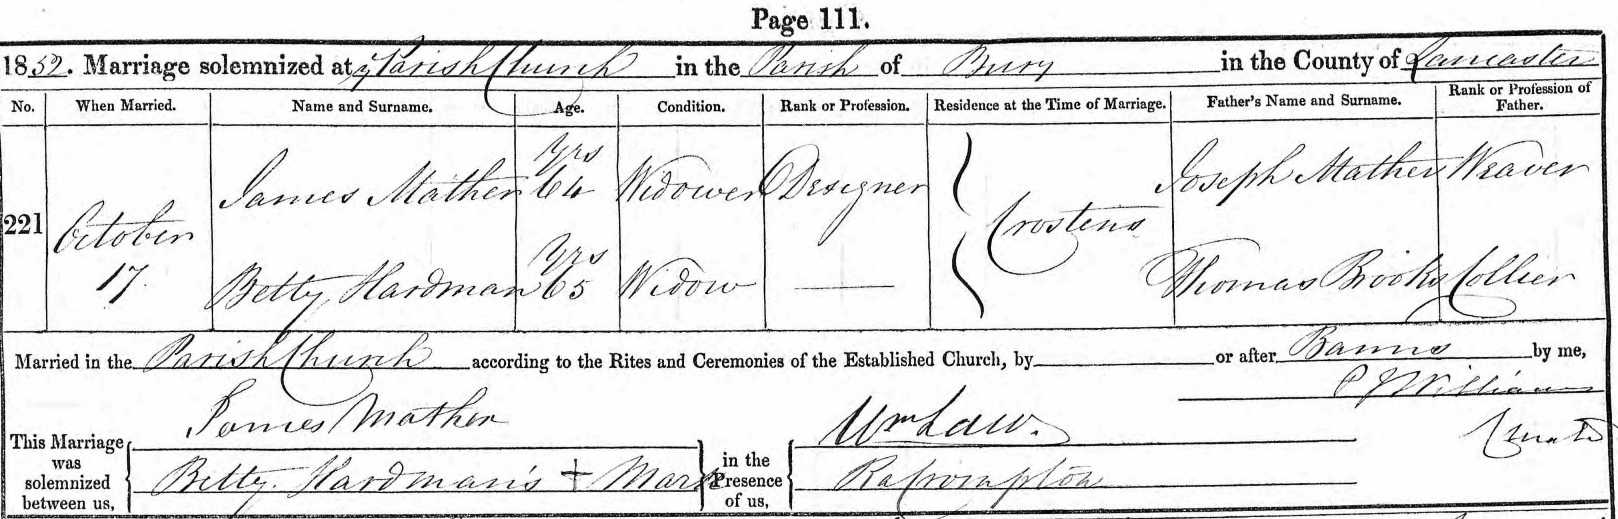 Page 111.
1852. Marriage solemnized at ye Parish Church in the Parish of Bury in the County of Lancaster
No. When Married. Name and Surname. Age. Condition. Rank or Profession. Residence at the Time of Marriage. Father's Name and Surname. Rank or Profession of Father.
221 October 17. James Mather 64 yrs Widower Designer Crostens Joseph Mather Weaver
Betty Hardman 65 yrs Widow Thomas Brooks Collier
Married in the Parish Church according to the Rites and Ceremonies of the Established Church, by or after Banns by me,
Williams
Curate
This Marriage was solemnized between us,
James Mather
Betty Hardman's + Mark
in the Presence of us,
Wm Law.
Ra Crompton